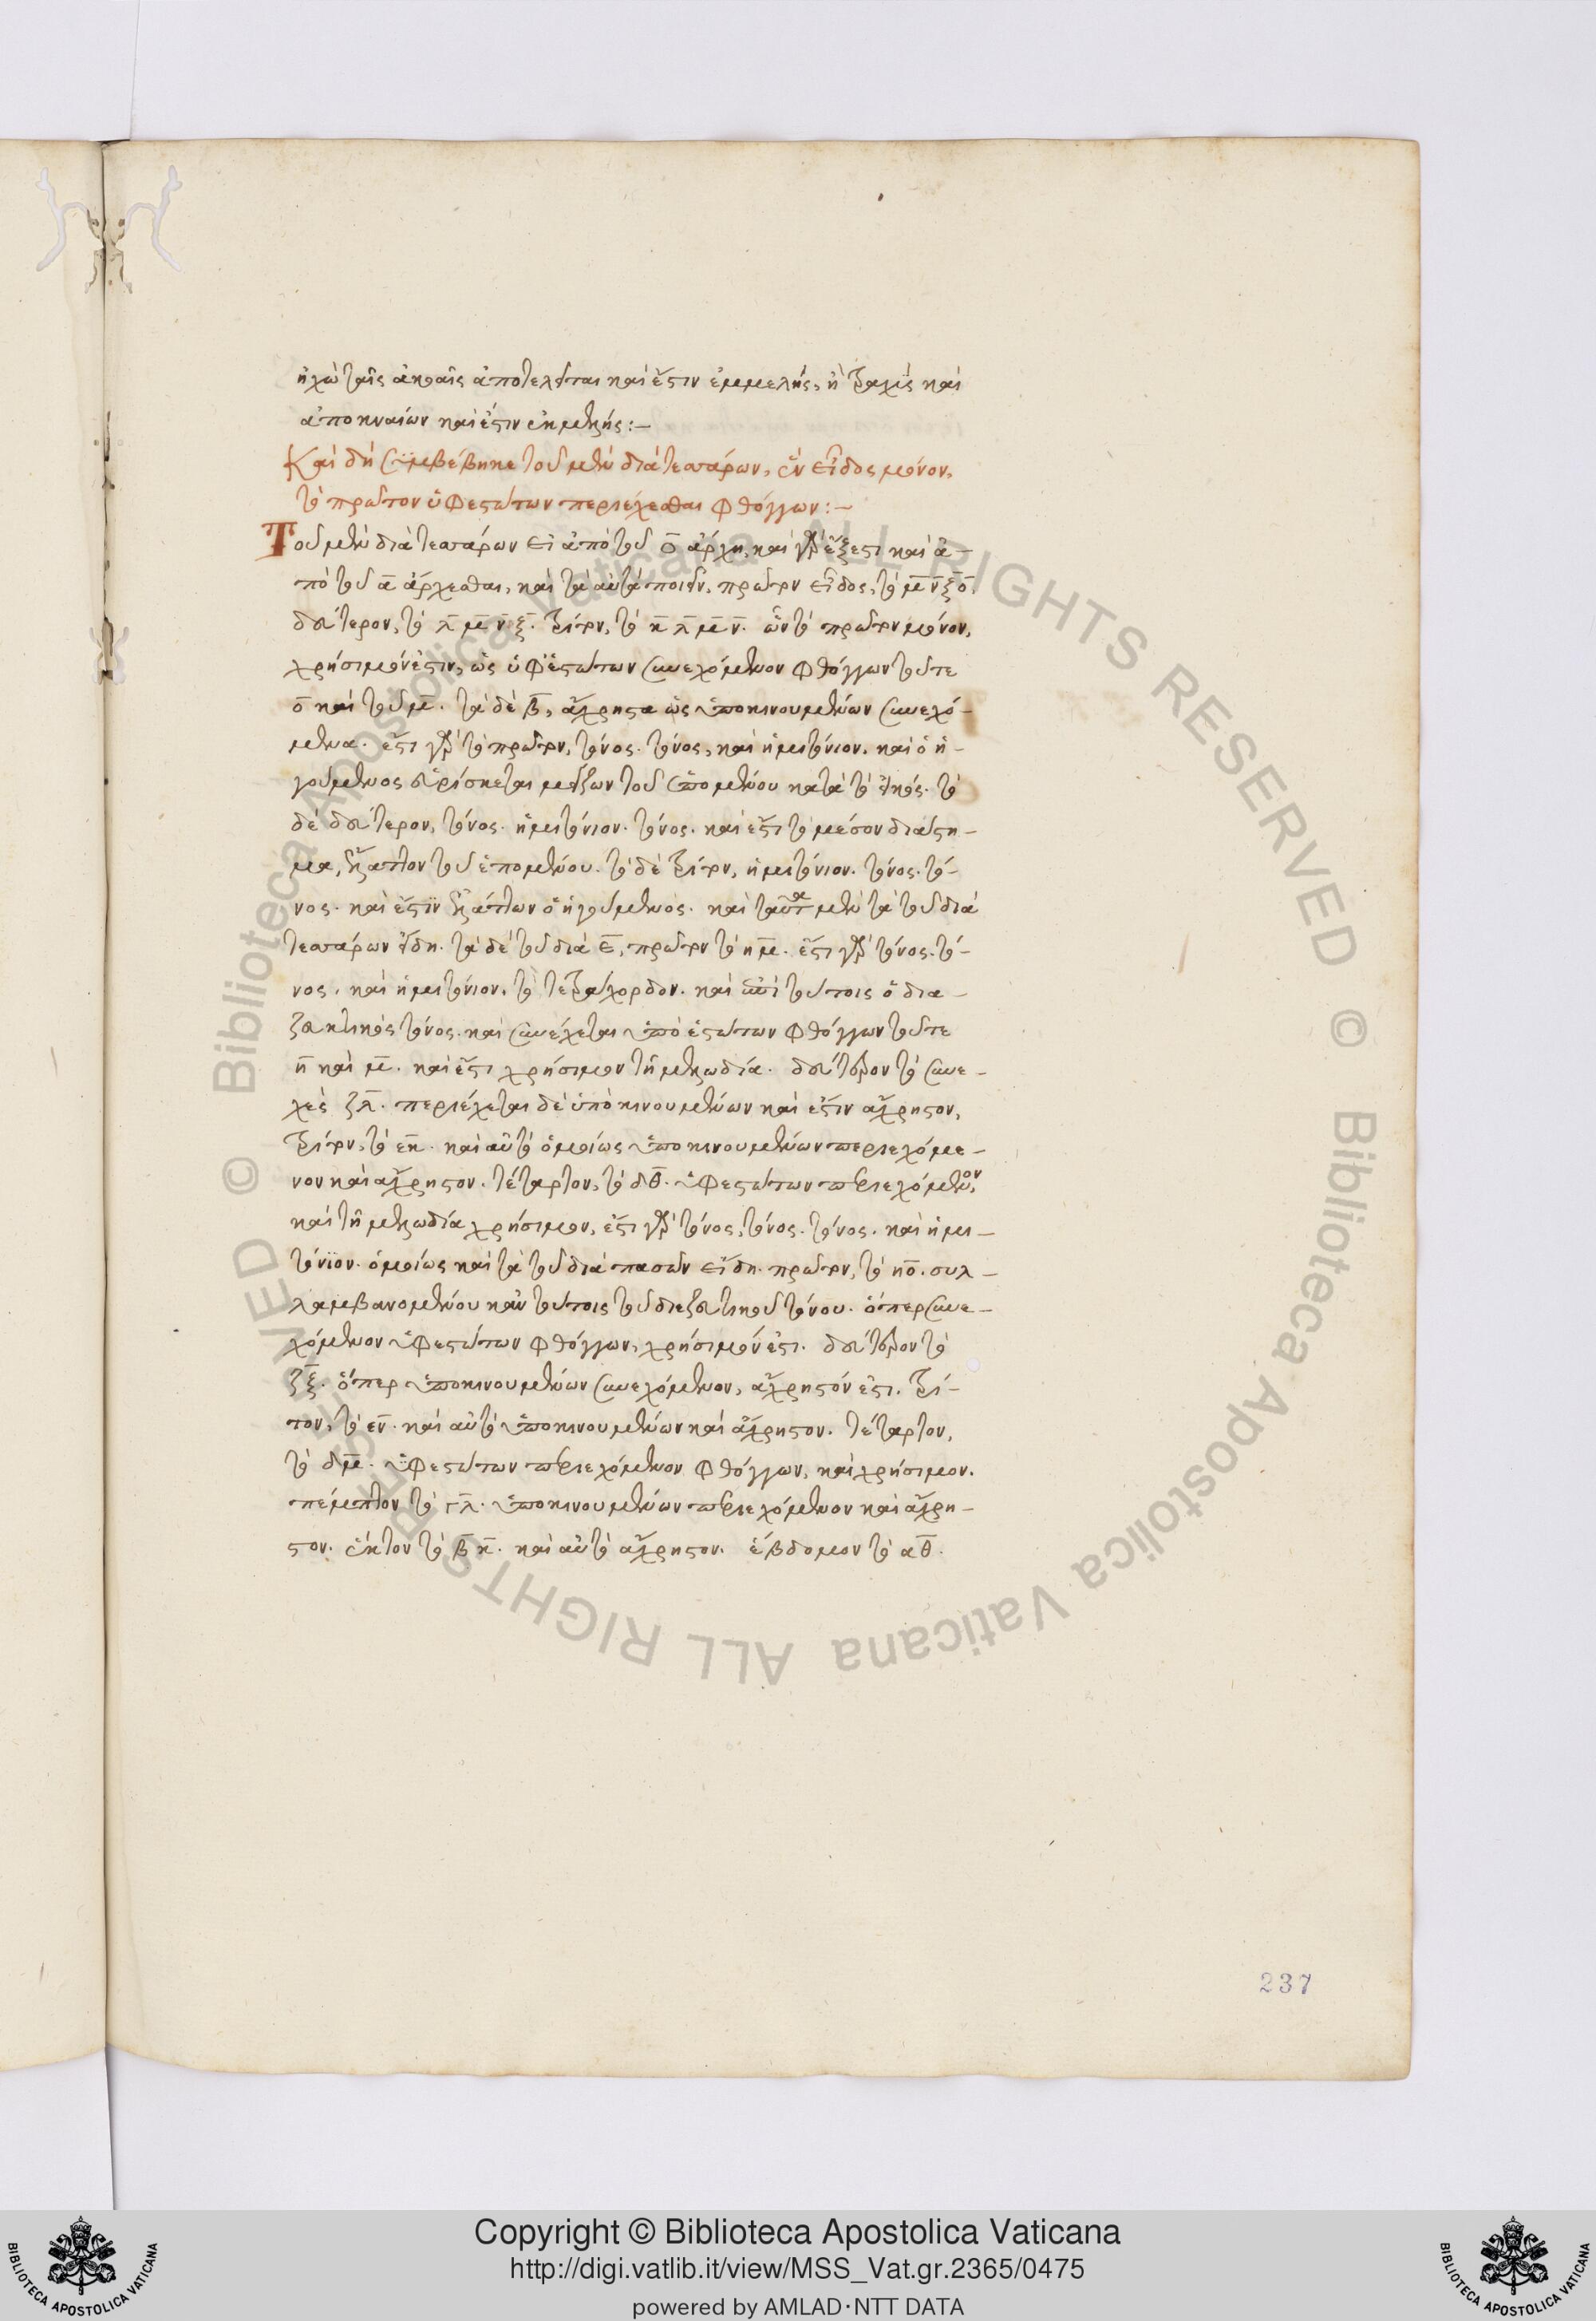 ἠχὼ ταῖς ἀκοαῖς ἀποτελεῖται καὶ ἔστιν ἐμμελής, ἢ τραχὺς καὶ
ἀποκναίων καὶ ἔστιν ἐκμελής:—
Καὶ δὴ συμβέβηκε τοῦ μὲν διὰ τεσσάρων, ἓν εἶδος μόνον,
τὸ πρῶτον ὑφεστώτων περιέχεσθαι φθόγγων:—
Τοῦ μὲν διὰ τεσσάρων εἰ ἀπὸ τοῦ ο̅ ἄρχῃ, καὶ γὰρ ἔξεστι καὶ ἀ—
πὸ τοῦ α̅ ἄρχεσθαι, καὶ τὰ αὐτὰ ποιεῖν, πρῶτον εἶδος, τὸ μ̅ ν̅ ξ̅ ο̅.
δεύτερον, τὸ λ̅ μ̅ ν̅ ξ̅. τρίτον, τὸ κ̅ λ̅ μ̅ ν̅. ὧν τὸ πρῶτον μόνον,
χρήσιμόν ἐστιν, ὡς ὑφεστώτων συνεχόμενον φθόγγων τοῦ τε
ο̅ καὶ τοῦ μ̅. τὰ δὲ β̅, ἄχρηστα ὡς ὑπὸ κινουμένων συνεχό—
μενα. ἔστι γὰρ τὸ πρῶτον, τόνος. τόνος, καὶ ἡμιτόνιον. καὶ ὁ ἡ—
γούμενος εὑρίσκεται μείζων τοῦ ἑπομένου κατὰ τὸ εἰκός. τὸ
δὲ δεύτερον, τόνος. ἡμιτόνιον. τόνος. καὶ ἔστι τὸ μέσον διάστη—
μα, ἔλαττον τοῦ ἑπομένου. τὸ δὲ τρίτον, ἡμιτόνιον. τόνος. τό—
νος. καὶ ἔστιν ἐλάττων ὁ ἡγούμενος. καὶ ταῦτα μὲν τὰ τοῦ διὰ
τεσσάρων εἴδη. τὰ δὲ τοῦ διὰ ε̅, πρῶτον τὸ η μ̅. ἔστι γὰρ τόνος. τό—
νος. καὶ ἡμιτόνιον. τὸ τετράχορδον. καὶ ἐπὶ τούτοις ὁ δια—
ζευκτικὸς τόνος. καὶ συνέχεται ὑπὸ ἑστώτων φθόγγων τοῦ τε
η̅ καὶ μ̅. καὶ ἔστι χρήσιμον τῇ μελῳδίᾳ. δεύτερον τὸ συνε—
χὲς ζ λ̅. περιέχεται δὲ ὑπὸ κινουμένων καὶ ἔστιν ἄχρηστον,
τρίτον, τὸ ε κ̅. καὶ αὐτὸ ὁμοίως ὑπὸ κινουμένων περιεχόμε—
νον καὶ ἄχρηστον. τέταρτον, τὸ δ θ̅. ὑφεστώτων περιεχόμενον,
καὶ τῇ μελῳδίᾳ χρήσιμον, ἔστι γὰρ τόνος, τόνος. τόνος. καὶ ἡμι—
τόνιον. ὁμοίως καὶ τὰ τοῦ διὰ πασῶν εἴδη. πρῶτον, τὸ η ο̅. συλ—
λαμβανομένου κἀν τούτοις τοῦ διεζευκτικοῦ τόνου. ὅπερ συνε—
χόμενον ὑφεστώτων φθόγγων, χρήσιμόν ἐστι. δεύτερον τὸ
ζ ξ̅. ὅπερ ὑπὸ κινουμένων συνεχόμενον, ἄχρηστόν ἐστι. τρί—
τον, τὸ ε ν̅. καὶ αὐτὸ ὑπὸ κινουμένων καὶ ἄχρηστον. τέταρτον,
τὸ δ μ̅. ὑφεστώτων περιεχόμενον φθόγγων, καὶ χρήσιμον.
πέμπτον τὸ γ λ̅. ὑπὸ κινουμένων περιεχόμενον καὶ ἄχρη—
στον. ἕκτον τὸ β̅ κ̅. καὶ αὐτὸ ἄχρηστον. ἕβδομον τὸ α θ̅.
237
© Biblioteca Apostolica Vaticana ALL RIGHTS RESERVED © Biblioteca Apostolica Vaticana ALL RIGHTS RESERVED
Copyright © Biblioteca Apostolica Vaticana
http://digi.vatlib.it/view/MSS_Vat.gr.2365/0475
powered by AMLAD·NTT DATA
BIBLIOTECA APOSTOLICA VATICANA
BIBLIOTECA APOSTOLICA VATICANA